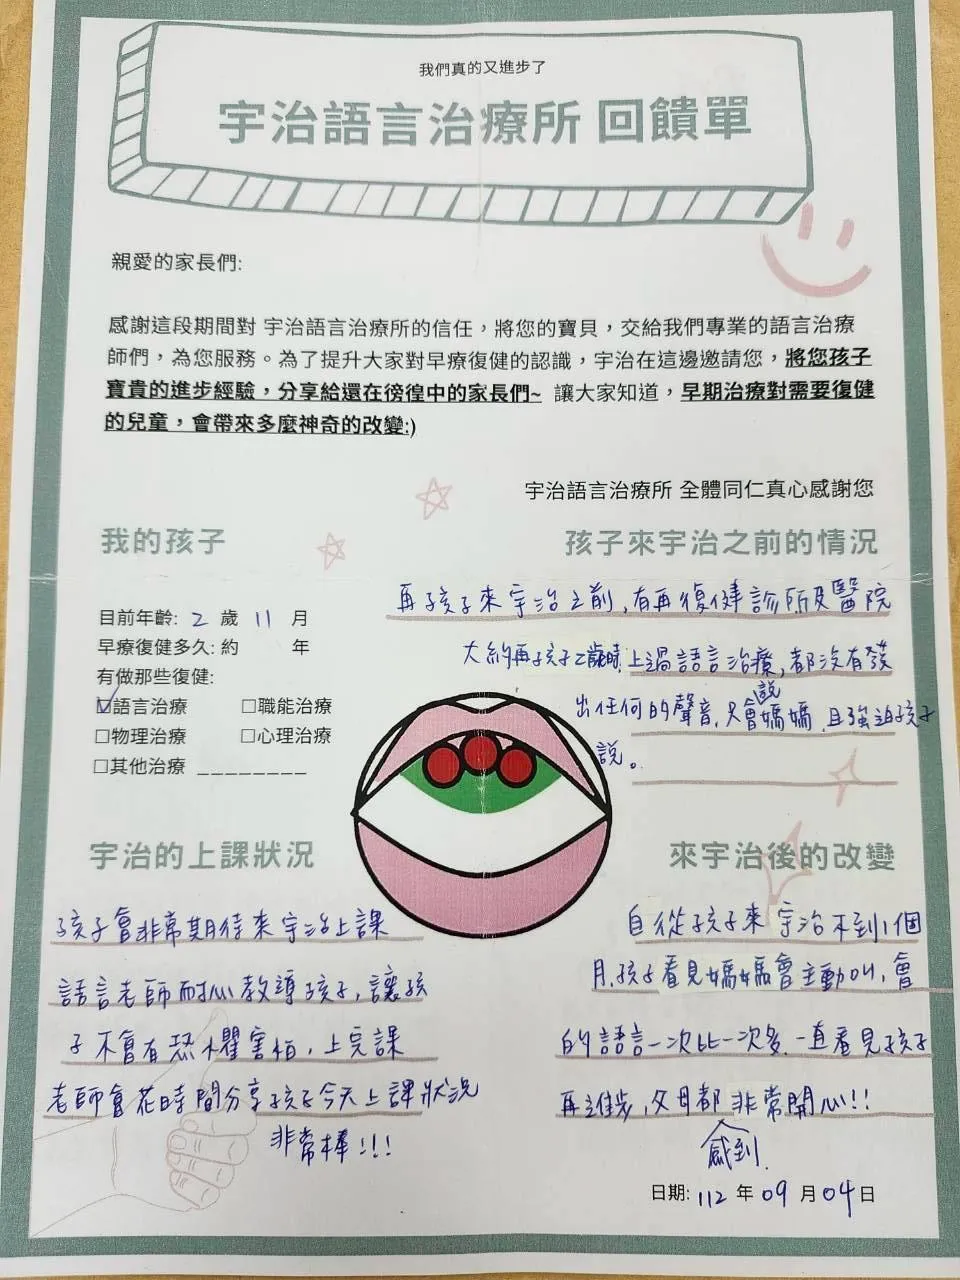 我們真的又進步了
宇治語言治療所 回饋單
親愛的家長們:
感謝這段期間對 宇治語言治療所的信任，將您的寶貝，交給我們專業的語言治療
師們，為您服務。為了提升大家對早療復健的認識，宇治在這邊邀請您，將您孩子
寶貴的進步經驗，分享給還在徬徨中的家長們~ 讓大家知道，早期治療對需要復健
的兒童，會帶來多麼神奇的改變:)
宇治語言治療所 全體同仁真心感謝您
我的孩子
目前年齡: 2 歲 11 月
早療復健多久: 約 年
有做那些復健:
☑語言治療 □職能治療
□物理治療 □心理治療
□其他治療 ________
孩子來宇治之前的情況
再孩子來宇治之前,有再復健診所及醫院
大約再孩子2歲時,上過語言治療,都沒有發
出任何的聲音,只會說媽媽,且強迫孩子
說。
宇治的上課狀況
孩子會非常期待來宇治上課
語言老師耐心教導孩子,讓孩
子不會有恐懼害怕,上完課
老師會花時間分享孩子今天上課狀況
非常棒!!!
來宇治後的改變
自從孩子來宇治不到1個
月,孩子看見媽媽會主動叫,會
的語言一次比一次多,一直看見孩子
再進步,父母都感到非常開心!!
日期: 112 年 09 月 04 日